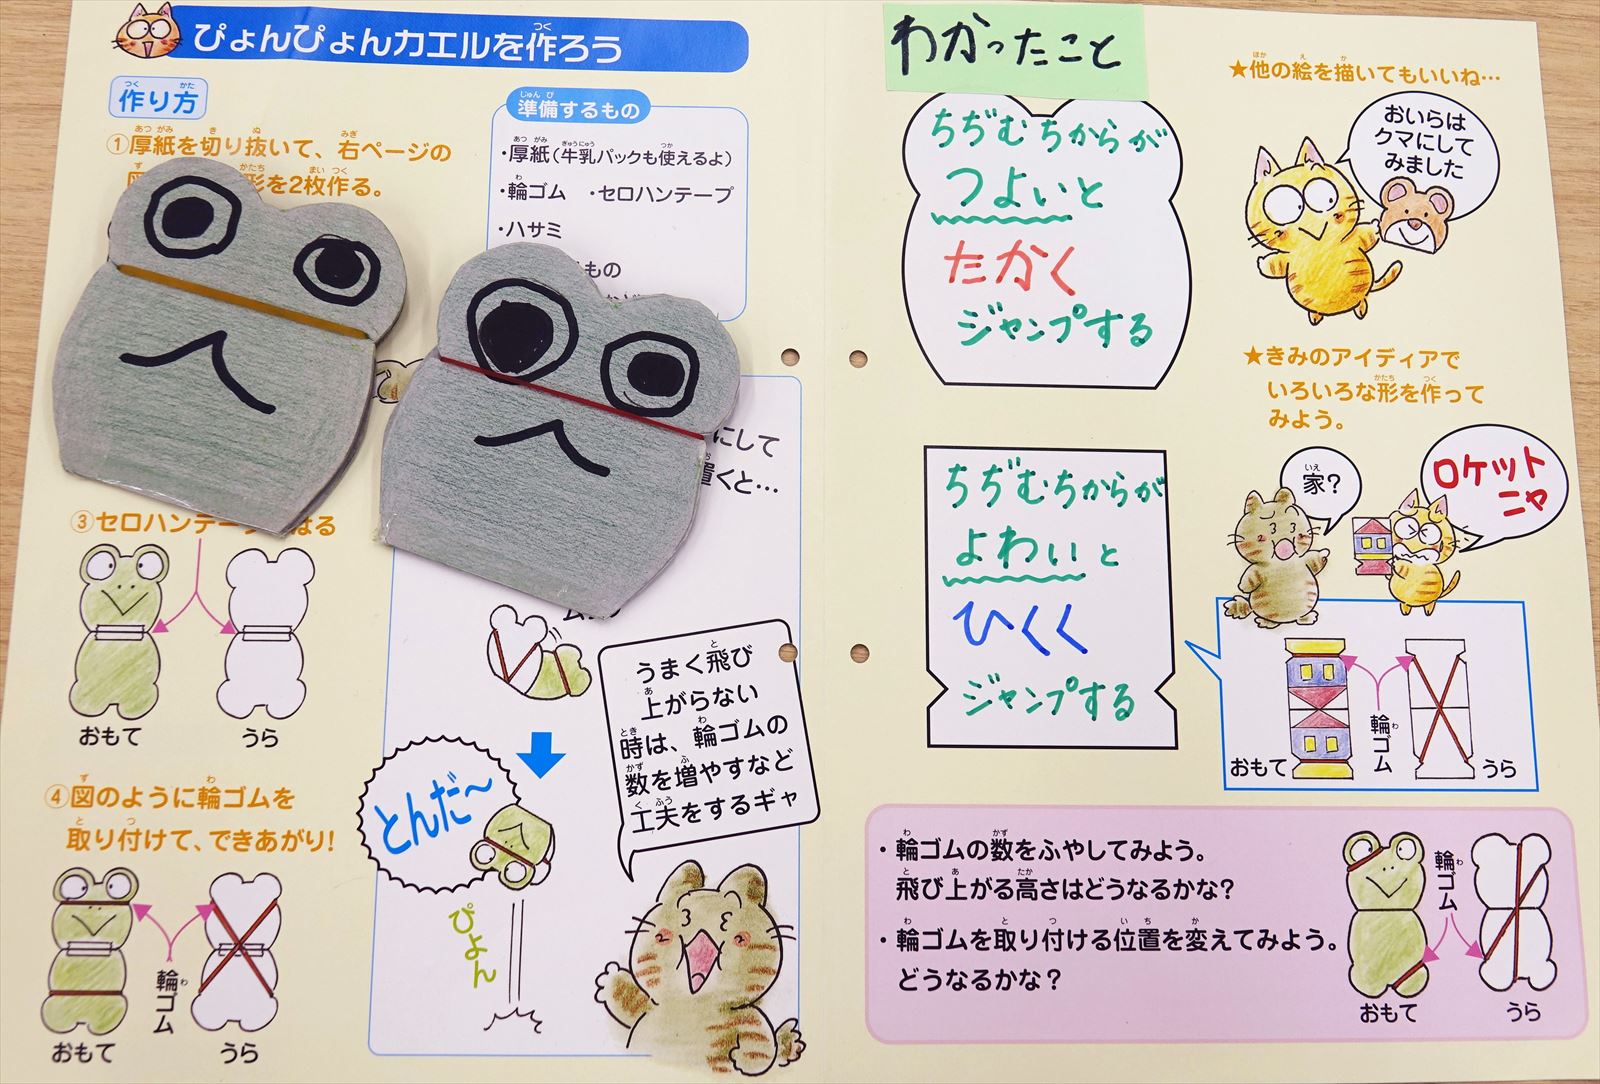 ぴょんぴょんカエルを作ろう
作り方
①厚紙を切り抜いて、右ページの
形を2枚作る。
準備するもの
・厚紙(牛乳パックも使えるよ)
・輪ゴム ・セロハンテープ
・ハサミ
もの
にして
置くと…
③セロハンテープ はる
おもて
うら
④図のように輪ゴムを
取り付けて、できあがり!
輪ゴム
おもて
うら
とんだ〜
ぴょん
うまく飛び
上がらない
時は、輪ゴムの
数を増やすなど
工夫をするギャ
わかったこと
ちぢむちからが
つよいと
たかく
ジャンプする
ちぢむちからが
よわいと
ひくく
ジャンプする
★他の絵を描いてもいいね…
おいらは
クマにして
みました
★きみのアイディアで
いろいろな形を作って
みよう。
家?
ロケット
ニャ
おもて
輪ゴム
うら
・輪ゴムの数をふやしてみよう。
飛び上がる高さはどうなるかな?
・輪ゴムを取り付ける位置を変えてみよう。
どうなるかな?
輪ゴム
おもて
うら